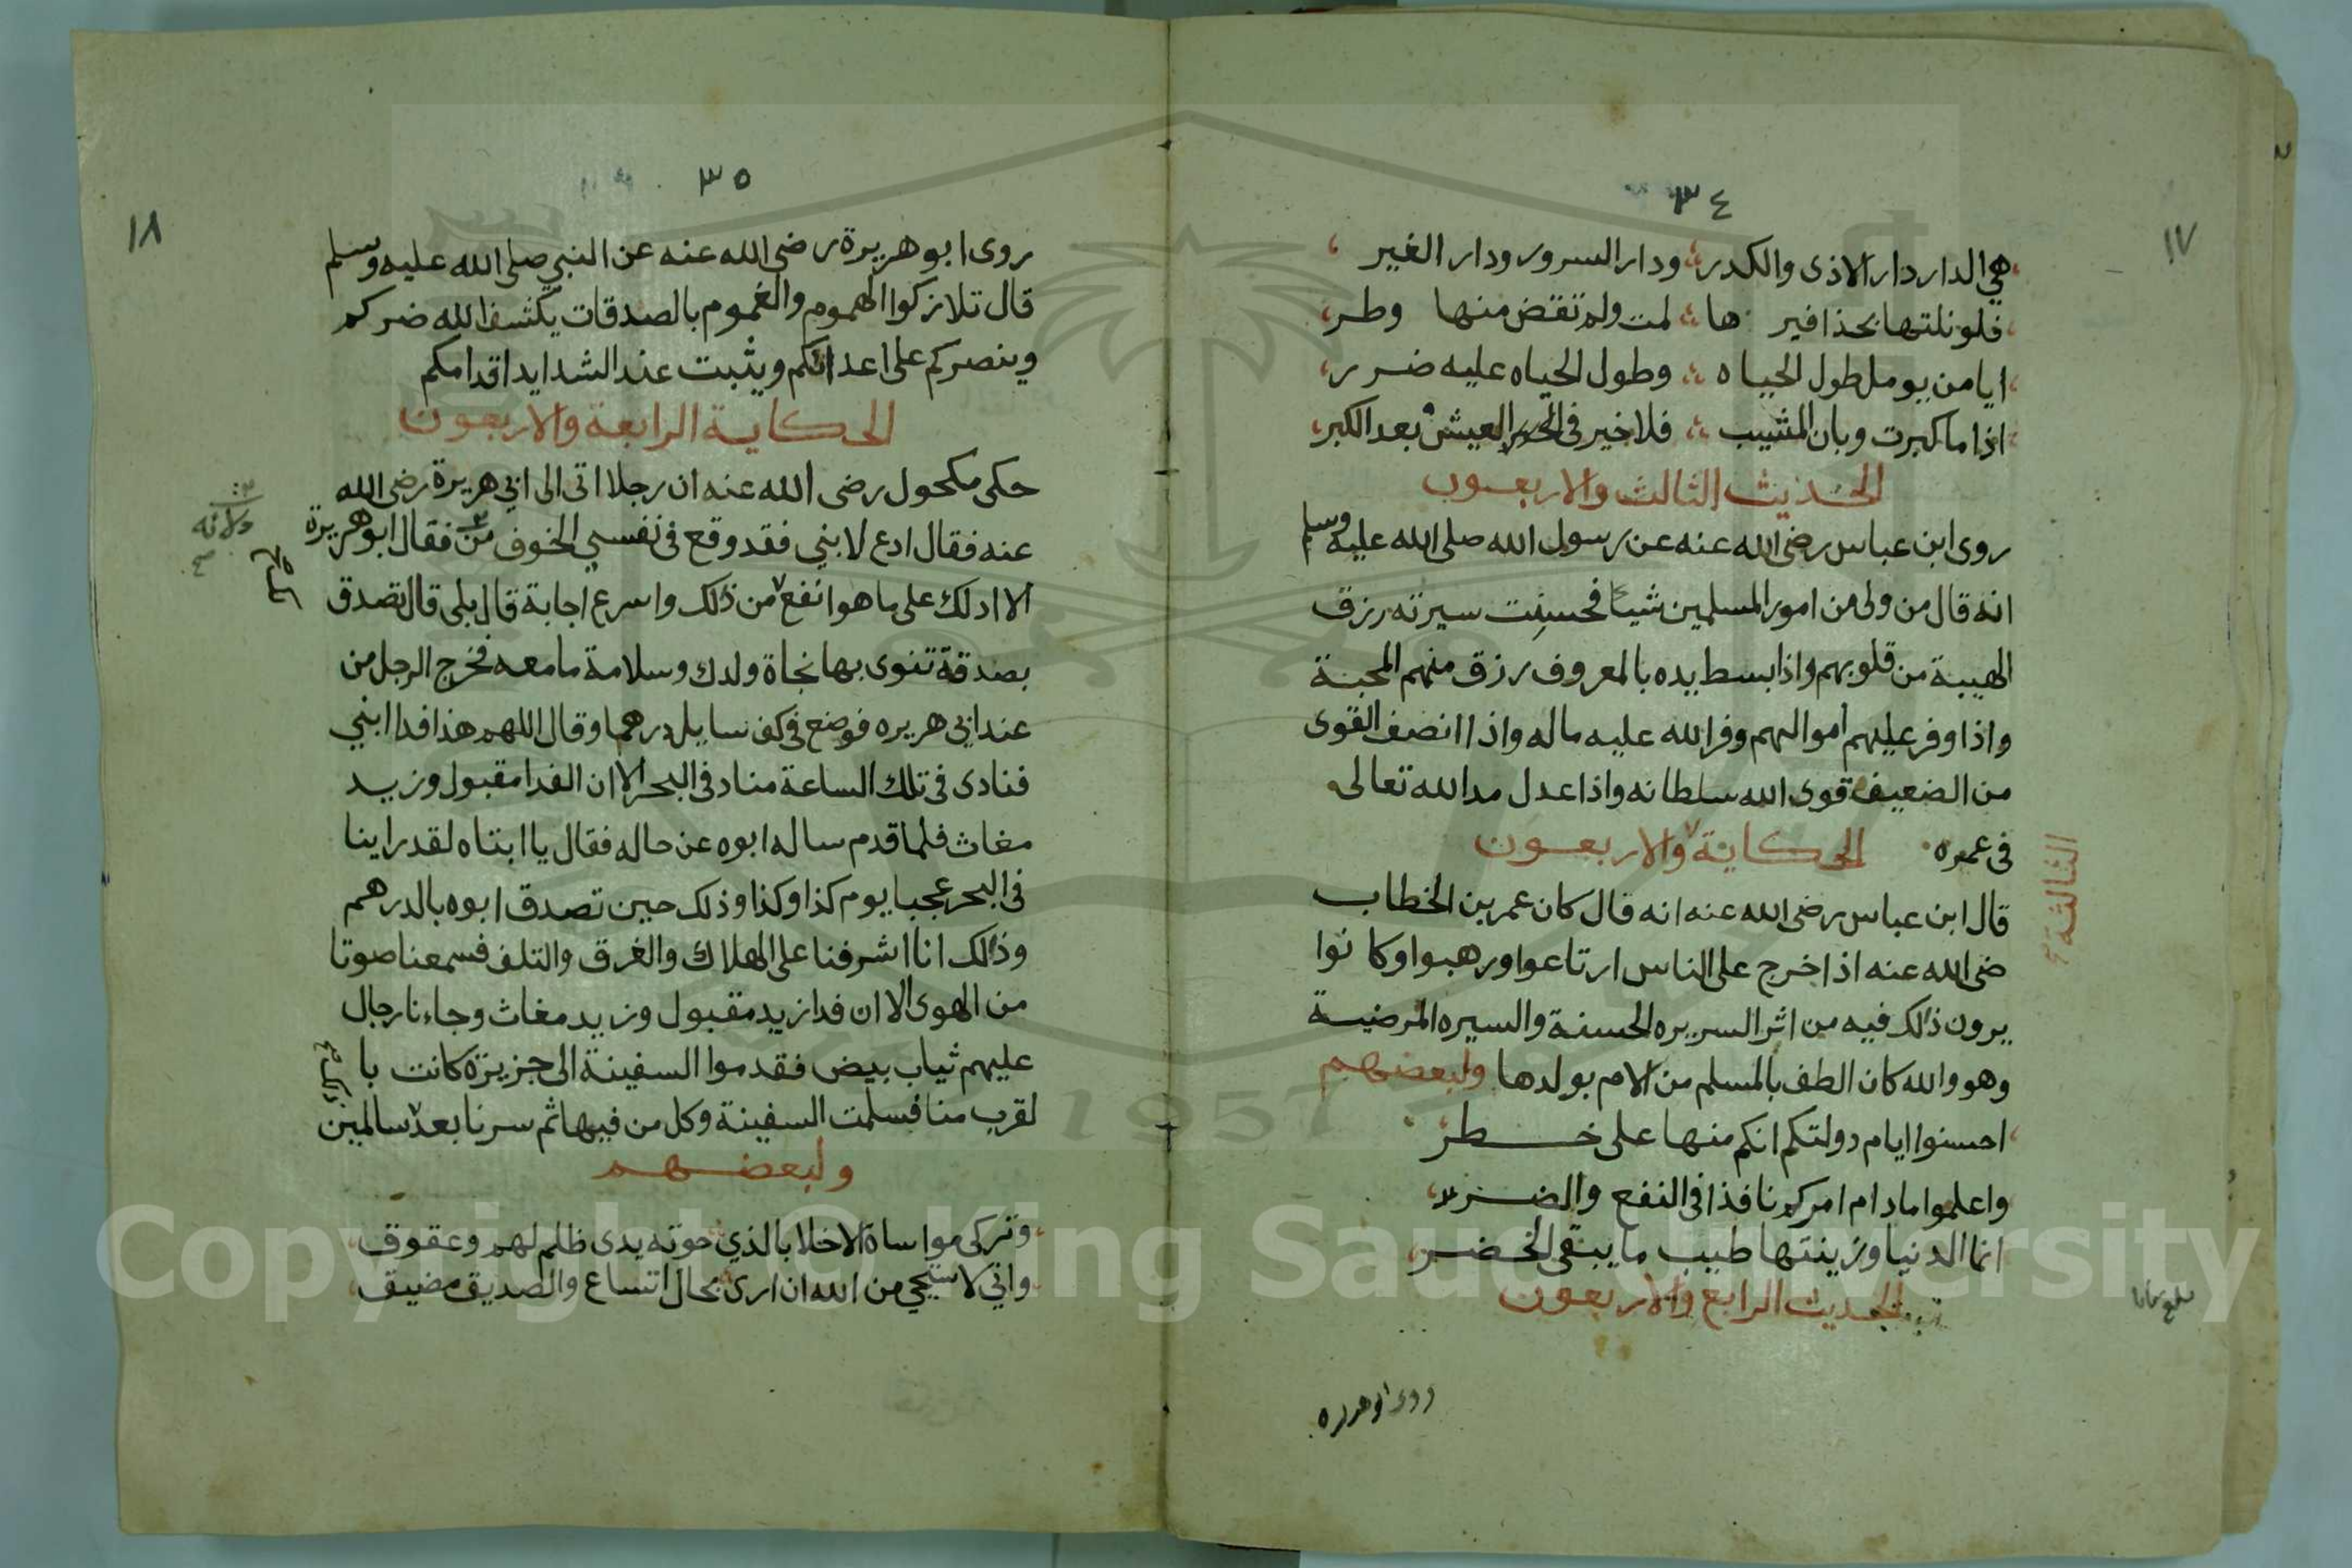 ٣٤
١٧
هي الدار دار الاذى والكدر ودار السرور ودار الغير
فلو نلتها بحذافير ها لمت ولم تقض منها وطر
ايا من يومل طول الحياه وطول الحياه عليه ضرر
اذا ما كبرت وبان المشيب فلا خير في العيش بعد الكبر
الحديث الثالث والاربعون
روى ابن عباس رضى الله عنه عن رسول الله صلى الله عليه وسلم
انه قال من ولى من امور المسلمين شيأ فحسنت سيرته رزق
الهيبة من قلوبهم واذا بسط يده بالمعروف رزق منهم المحبة
واذا وفر عليهم اموالهم وفر الله عليه ماله واذا انصف القوى
من الضعيف قوى الله سلطانه واذا عدل مد الله تعالى
فى عمره الحكاية والاربعون
الثالثة
قال ابن عباس رضى الله عنه انه قال كان عمر بن الخطاب
ضى الله عنه اذا خرج على الناس ارتاعوا ورهبوا وكا نوا
يرون ذلك فيه من اثر السريره الحسنة والسيره المرضية
وهو والله كان الطف بالمسلم من الام بولدها ولبعضهم
احسنوا ايام دولتكم انكم منها على خطر
واعلموا مادام امركم نافذا فى النفع والضرر
انما الدنيا وزينتها طيب ما يبقى الخضر
الحديث الرابع والاربعون
روى ابو هريره
٣٥
١٨
روى ابو هريرة رضى الله عنه عن النبي صلى الله عليه وسلم
قال تلاز كوا الهموم والغموم بالصدقات يكشف الله ضركم
وينصركم على اعدائكم ويثبت عند الشدايد اقدامكم
الحكاية الرابعة والاربعون
حكى مكحول رضى الله عنه ان رجلا اتى الى ابي هريرة رضى الله
عنه فقال ادع لابني فقد وقع فى نفسي الخوف من فقال ابو هريرة
الا ادلك على ما هو انفع من ذلك واسرع اجابة قال بلى قال تصدق
بصدقة تنوى بها نجاة ولدك وسلامة ما معه فخرج الرجل من
عند ابي هريره فوضع فى كف سايل درهما وقال اللهم هذا فدا ابني
فنادى فى تلك الساعة مناد فى البحر الا ان الفدا مقبول وزيد
مغاث فلما قدم ساله ابوه عن حاله فقال يا ابتاه لقد راينا
فى البحر عجبا يوم كذا وكذا وذلك حين تصدق ابوه بالدرهم
وذلك انا اشرفنا على الهلاك والغرق والتلف فسمعنا صوتا
من الهوى الا ان فدا زيد مقبول وزيد مغاث وجاءنا رجال
عليهم ثياب بيض فقدموا السفينة الى جزيزة كانت با
لقرب منا فسلمت السفينة وكل من فيها ثم سرنا بعد سالمين
ولبعضهم
وتركى مواساة الاخلا بالذي حوته يدى ظلم لهم وعقوق
واني لاستحي من الله ان ارى بحال اتساع والصديق مضيق
Copyright © King Saud University
1957